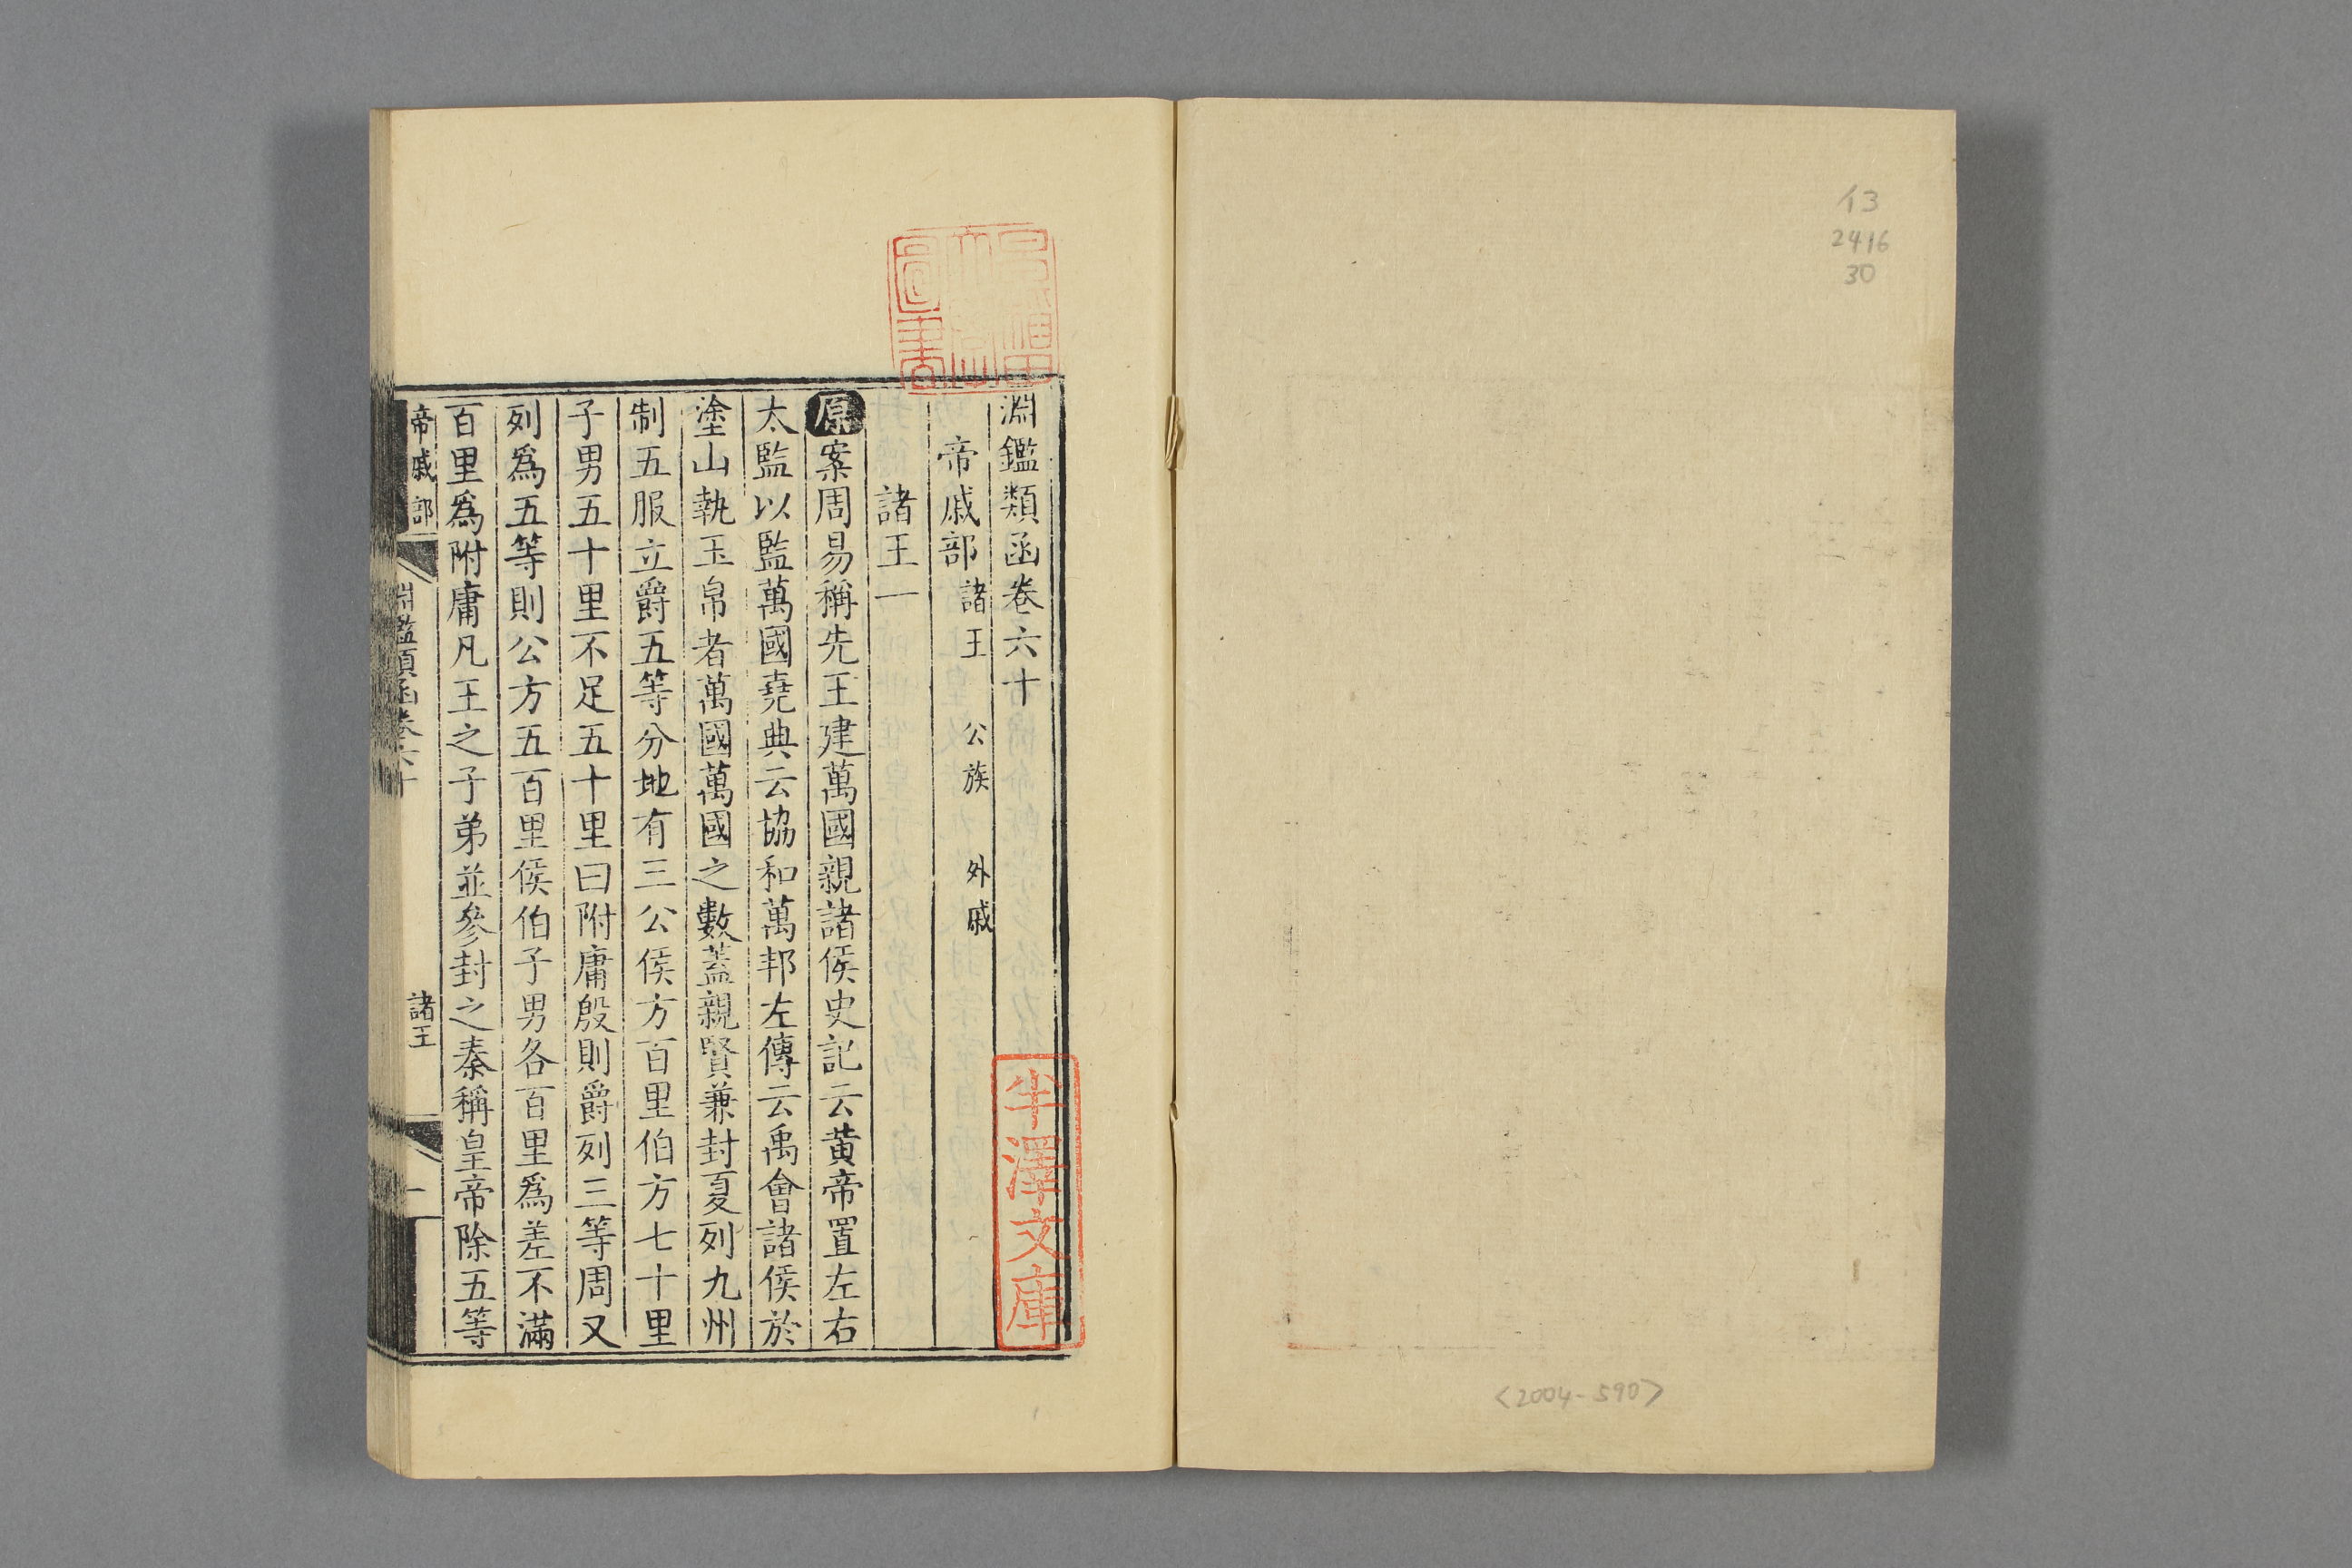 13
2416
30
<2004-590>
淵鑑類函卷六十
帝戚部 諸王 公族 外戚
諸王一
原案周易稱先王建萬國親諸侯史記云黄帝置左右
太監以監萬國堯典云協和萬邦左傳云禹會諸侯於
塗山執玉帛者萬國萬國之數蓋親賢兼封夏列九州
制五服立爵五等分地有三公侯方百里伯方七十里
子男五十里不足五十里曰附庸殷則爵列三等周又
列爲五等則公方五百里侯伯子男各百里爲差不滿
百里爲附庸凡王之子弟並參封之秦稱皇帝除五等
帝戚部 淵鑑類函卷六十 諸王 一
半澤文庫
圖書